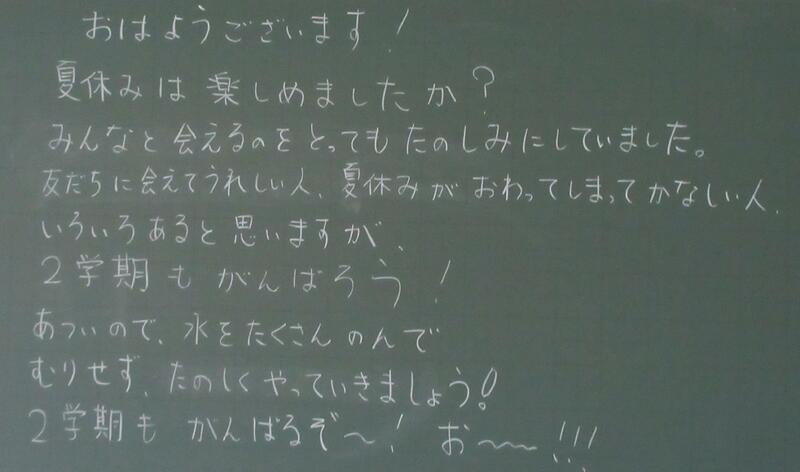 おはようございます!
夏休みは楽しめましたか?
みんなと会えるのをとってもたのしみにしていました。
友だちに会えてうれしい人、夏休みがおわってしまってかなしい人、
いろいろあると思いますが、
2学期もがんばろう!
あついので、水をたくさんのんで
むりせず、たのしくやっていきましょう!
2学期もがんばるぞ〜! お〜〜!!!